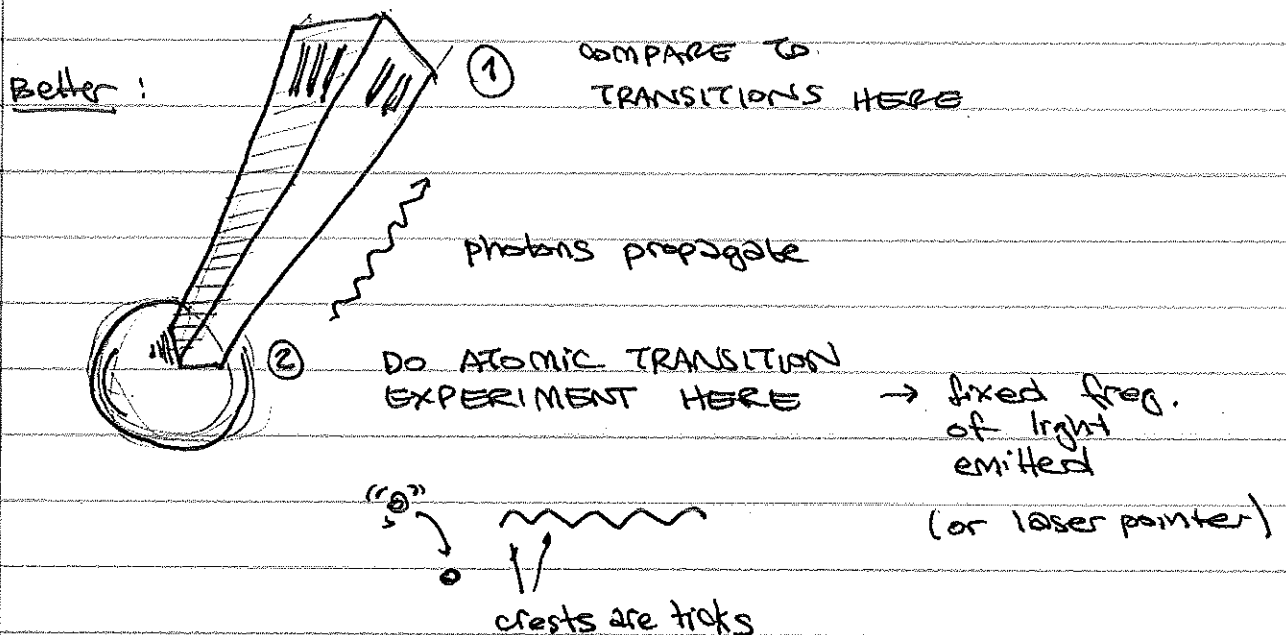 Better :
① COMPARE TO
TRANSITIONS HERE
photons propagate
② DO ATOMIC TRANSITION
EXPERIMENT HERE → fixed freq.
of light
emitted
(or laser pointer)
crests are ticks